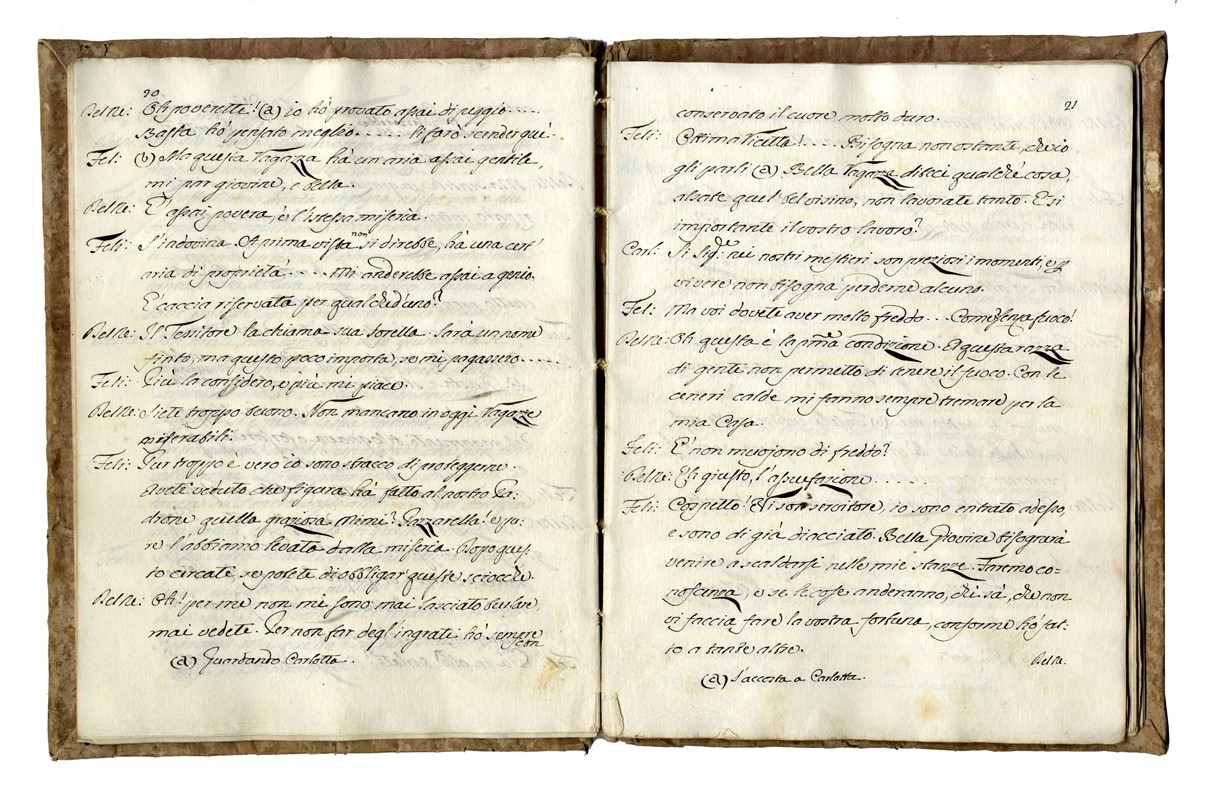 20
Belke: Oh poverette! (a) io hó provato assai di peggio.....
Basta hó pensato meglio..... li faró render quì.
Feli: (b) Ma questa Ragazza há un aria assai gentile,
mi par giovine, e bella.
Belke: E' assai povera, è l'istessa miseria.
Feli: S'indovina. A prima vista non si direbbe, há una cert'
aria di proprietá..... Mi anderebbe assai a genio.
E' caccia riservata per qualcheduno?
Belke: Il Tessitore la chiama sua sorella. Sará un nome
finto, ma questo poco importa, se mi pagassero.....
Feli: Piú la considero, e piú mi piace.
Belke: Siete troppo buono. Non mancano in oggi Ragazze
miserabili.
Feli: Pur troppo è vero io sono stracco di proteggerne.
Avete veduto che figura há fatto al nostro Pa-
drone quella graziosa Mimi? Pazzarella! e pu-
re l'abbiamo levata dalla miseria. Dopo ques-
to cercate, se potete di obbligar' queste sciocche.
Belke: Oh! per me non mi sono mai lasciato burlare,
mai vedete. Per non far degl'ingrati hó sempre
con
(a) Guardando Carlotta.
21
conservato il cuore molto duro.
Feli: Ottima ricetta!.... Bisogna non ostante, che io
gli parli (a) Bella Ragazza diteci qualche cosa,
alzate quel bel visino, non lavorate tanto. E' sì
importante il vostro lavoro?
Carl: Si Sig.re nei nostri mestieri son preziosi i momenti, e p
vivere non bisogna perderne alcuno.
Fel: Ma voi dovete aver molto freddo... Come! senza fuoco!
Belke: Oh questa è la pma condizione. A questa razza
di gente non permetto di tenere il fuoco. Con le
ceneri calde mi fanno sempre tremare per la
mia Casa.
Feli: E' non muojono di freddo?
Belke: Eh giusto, l'assuefazione......
Feli: Cospetto! Vi son servitore, io sono entrato adesso
e sono di giá diacciato. Bella Giovine bisognerá
venire a scaldarsi nelle mie stanze. Faremo co-
noscenza, e se le cose anderanno, chi sá, che non
vi faccia fare la vostra fortuna, conforme hó fat-
to a tante altre.
Belke.
(a) S'accosta a Carlotta.